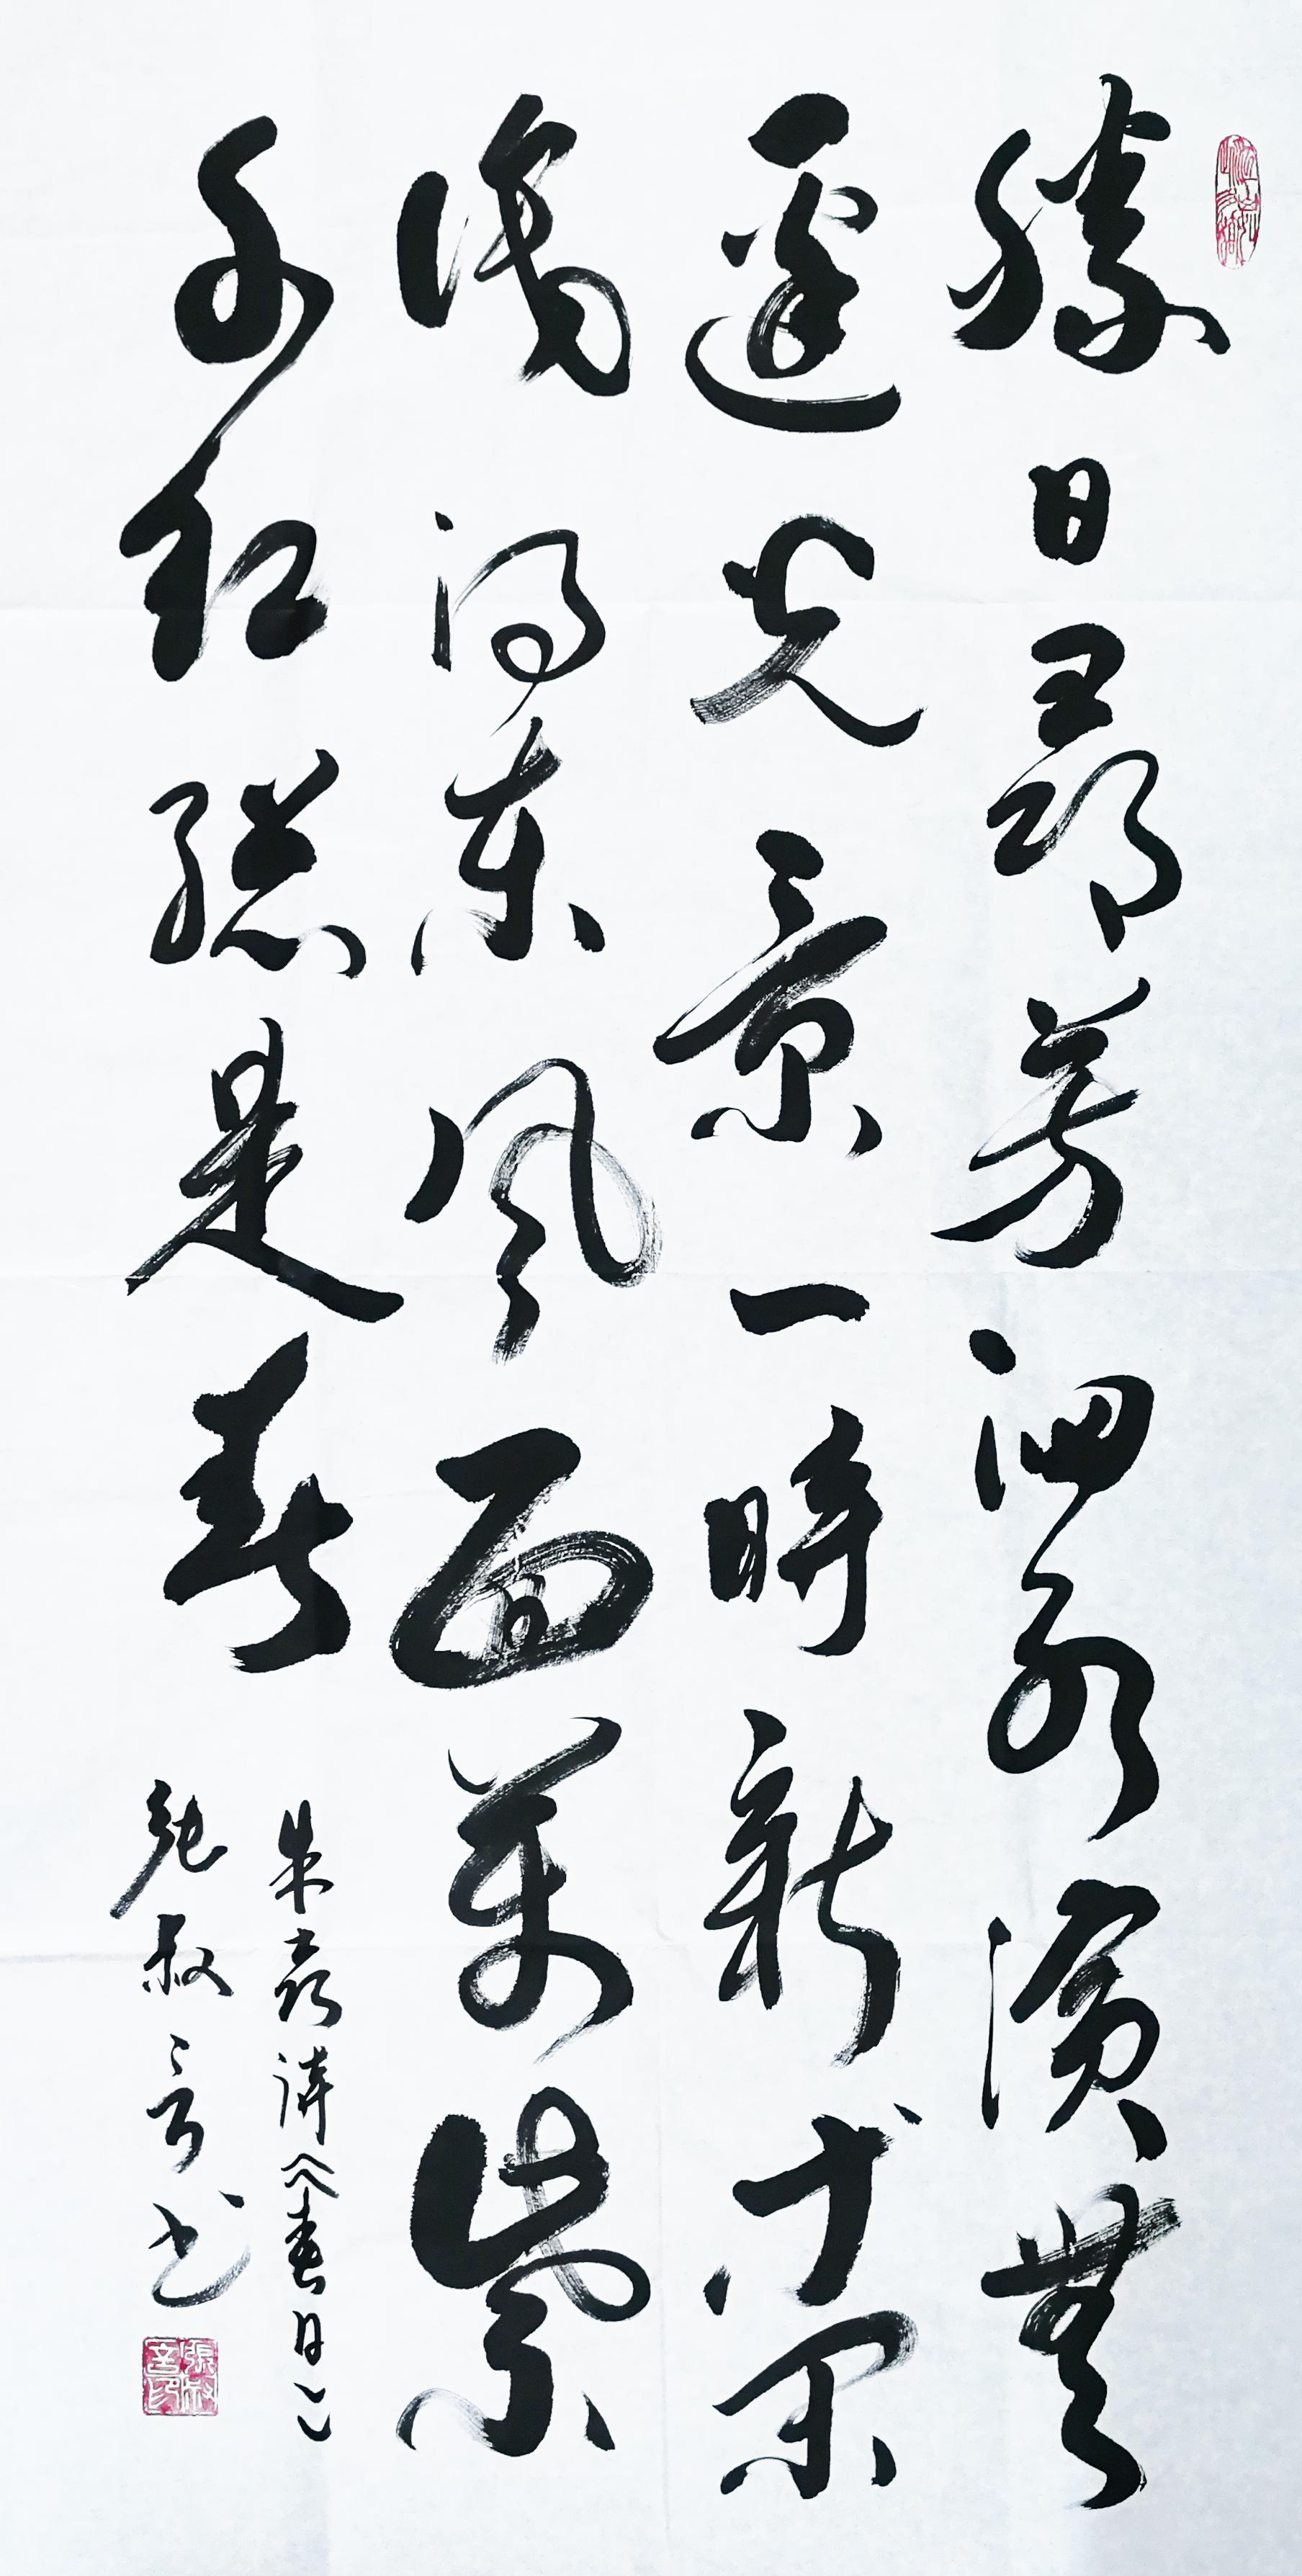 勝日尋芳泗水濱無
邊光景一時新等閑
識得東風面萬紫
千紅總是春
朱熹詩《春日》
張叔言书
張叔言印